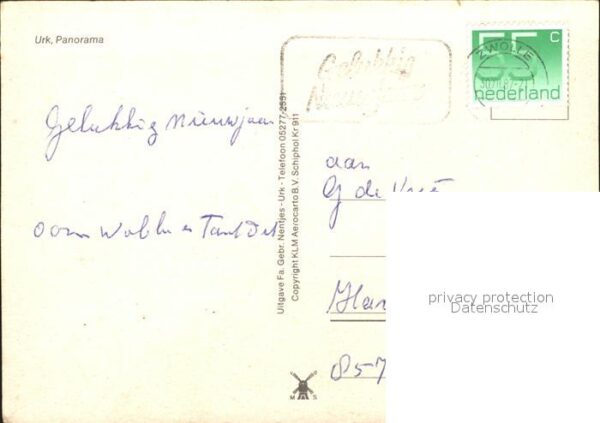 Urk, Panorama
Gelukkig
Nieuwjaar
55 c
nederland
ZWOLLE
Gelukkig nieuwjaar
oom Wobbe en Tant
Uitgave Fa. Gebr. Nentjes - Urk - Telefoon 05277-2551
Copyright KLM Aerocarto B.V. Schiphol Kr 911
aan
G de
Har
857
M S
privacy protection
Datenschutz